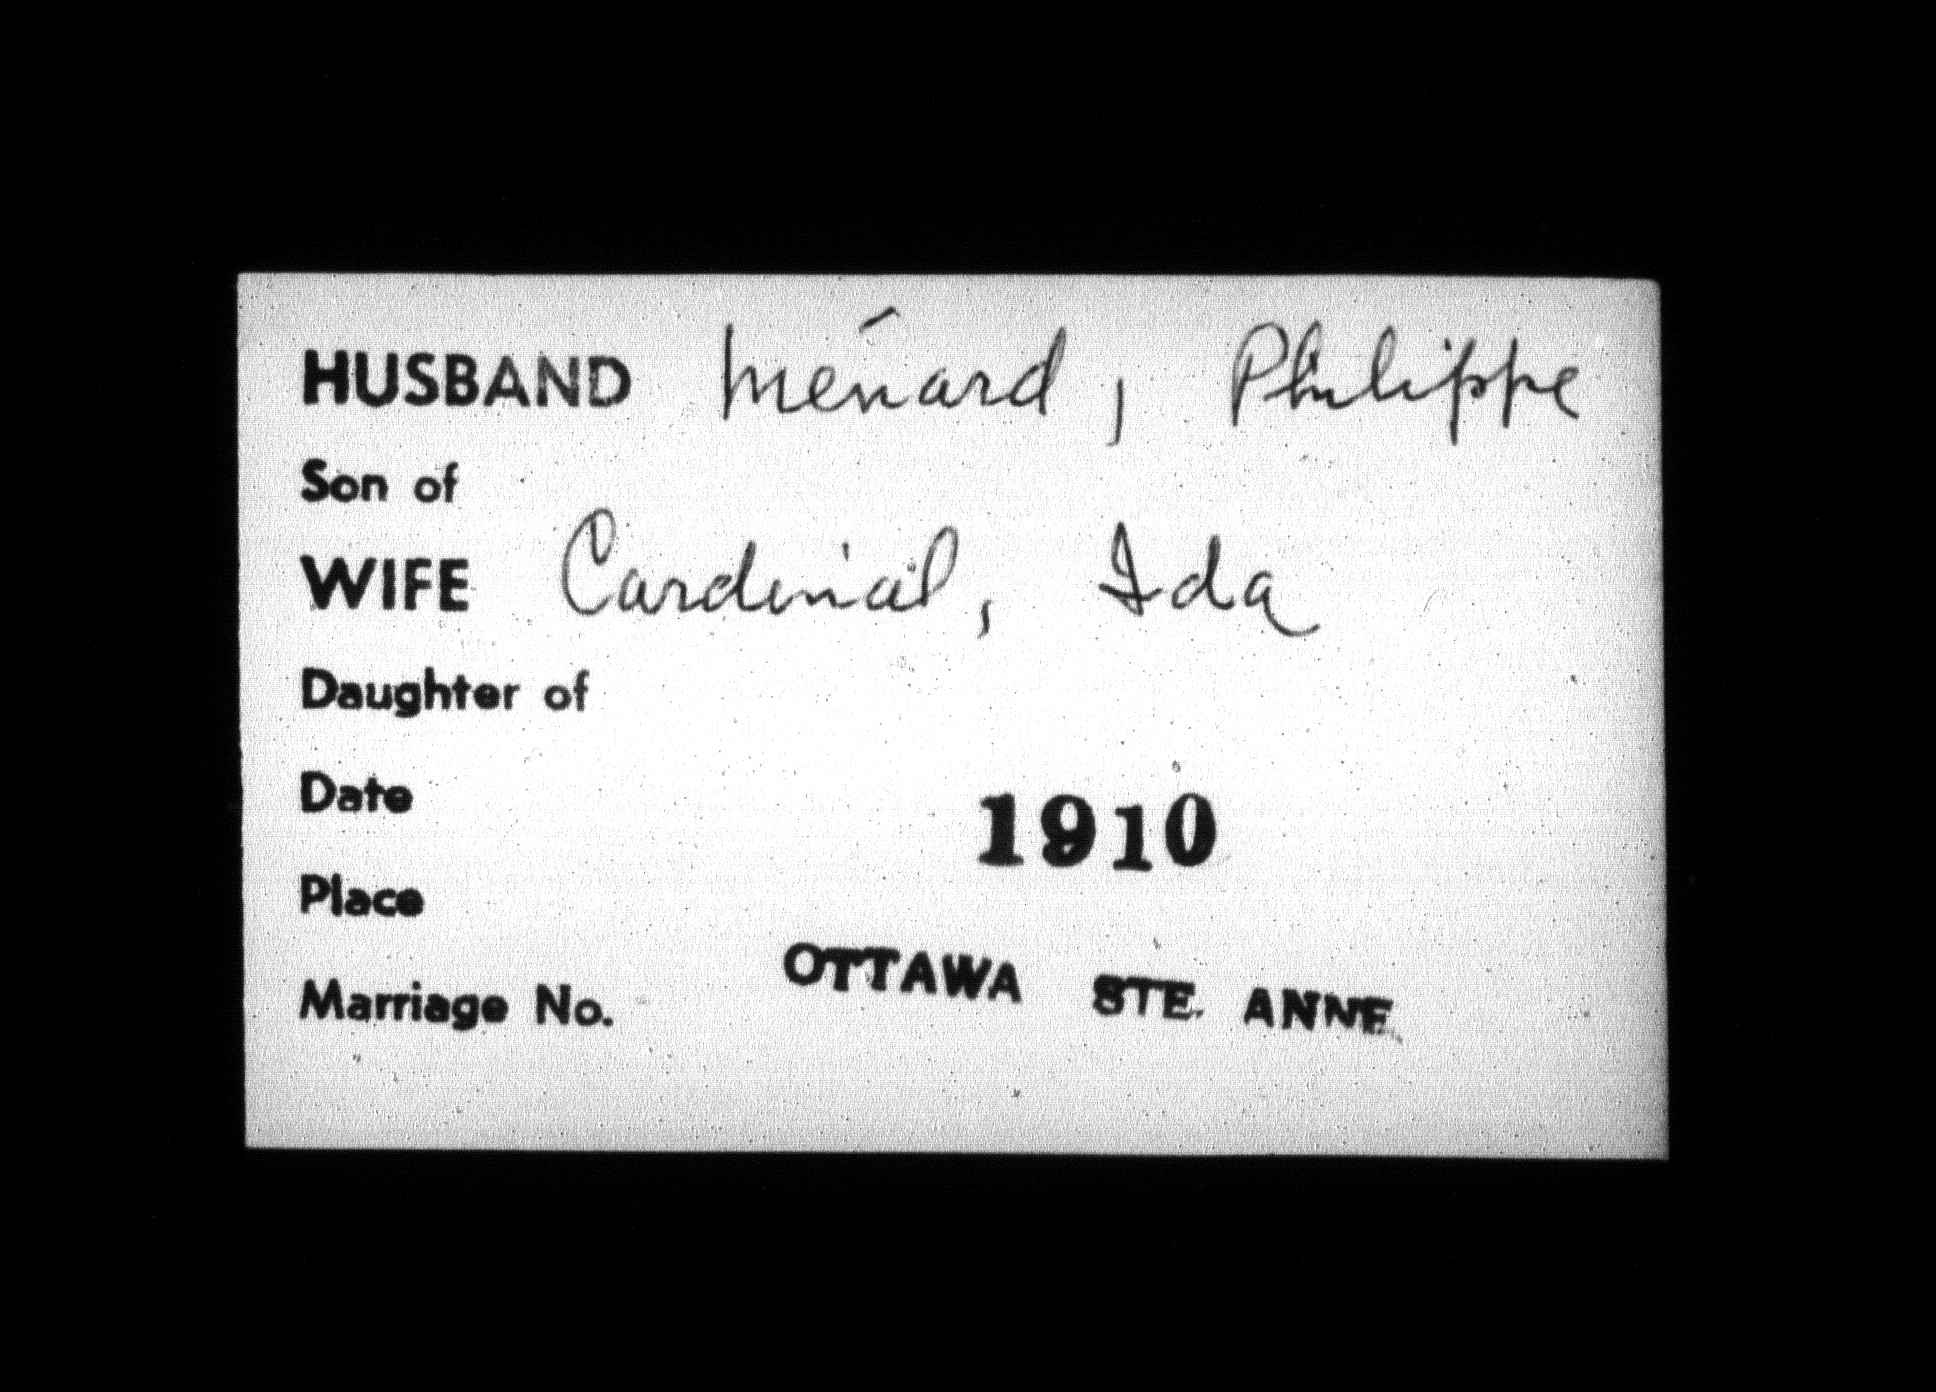 HUSBAND Ménard, Philippe
Son of
WIFE Cardinal, Ida
Daughter of
Date 1910
Place
OTTAWA STE. ANNE
Marriage No.